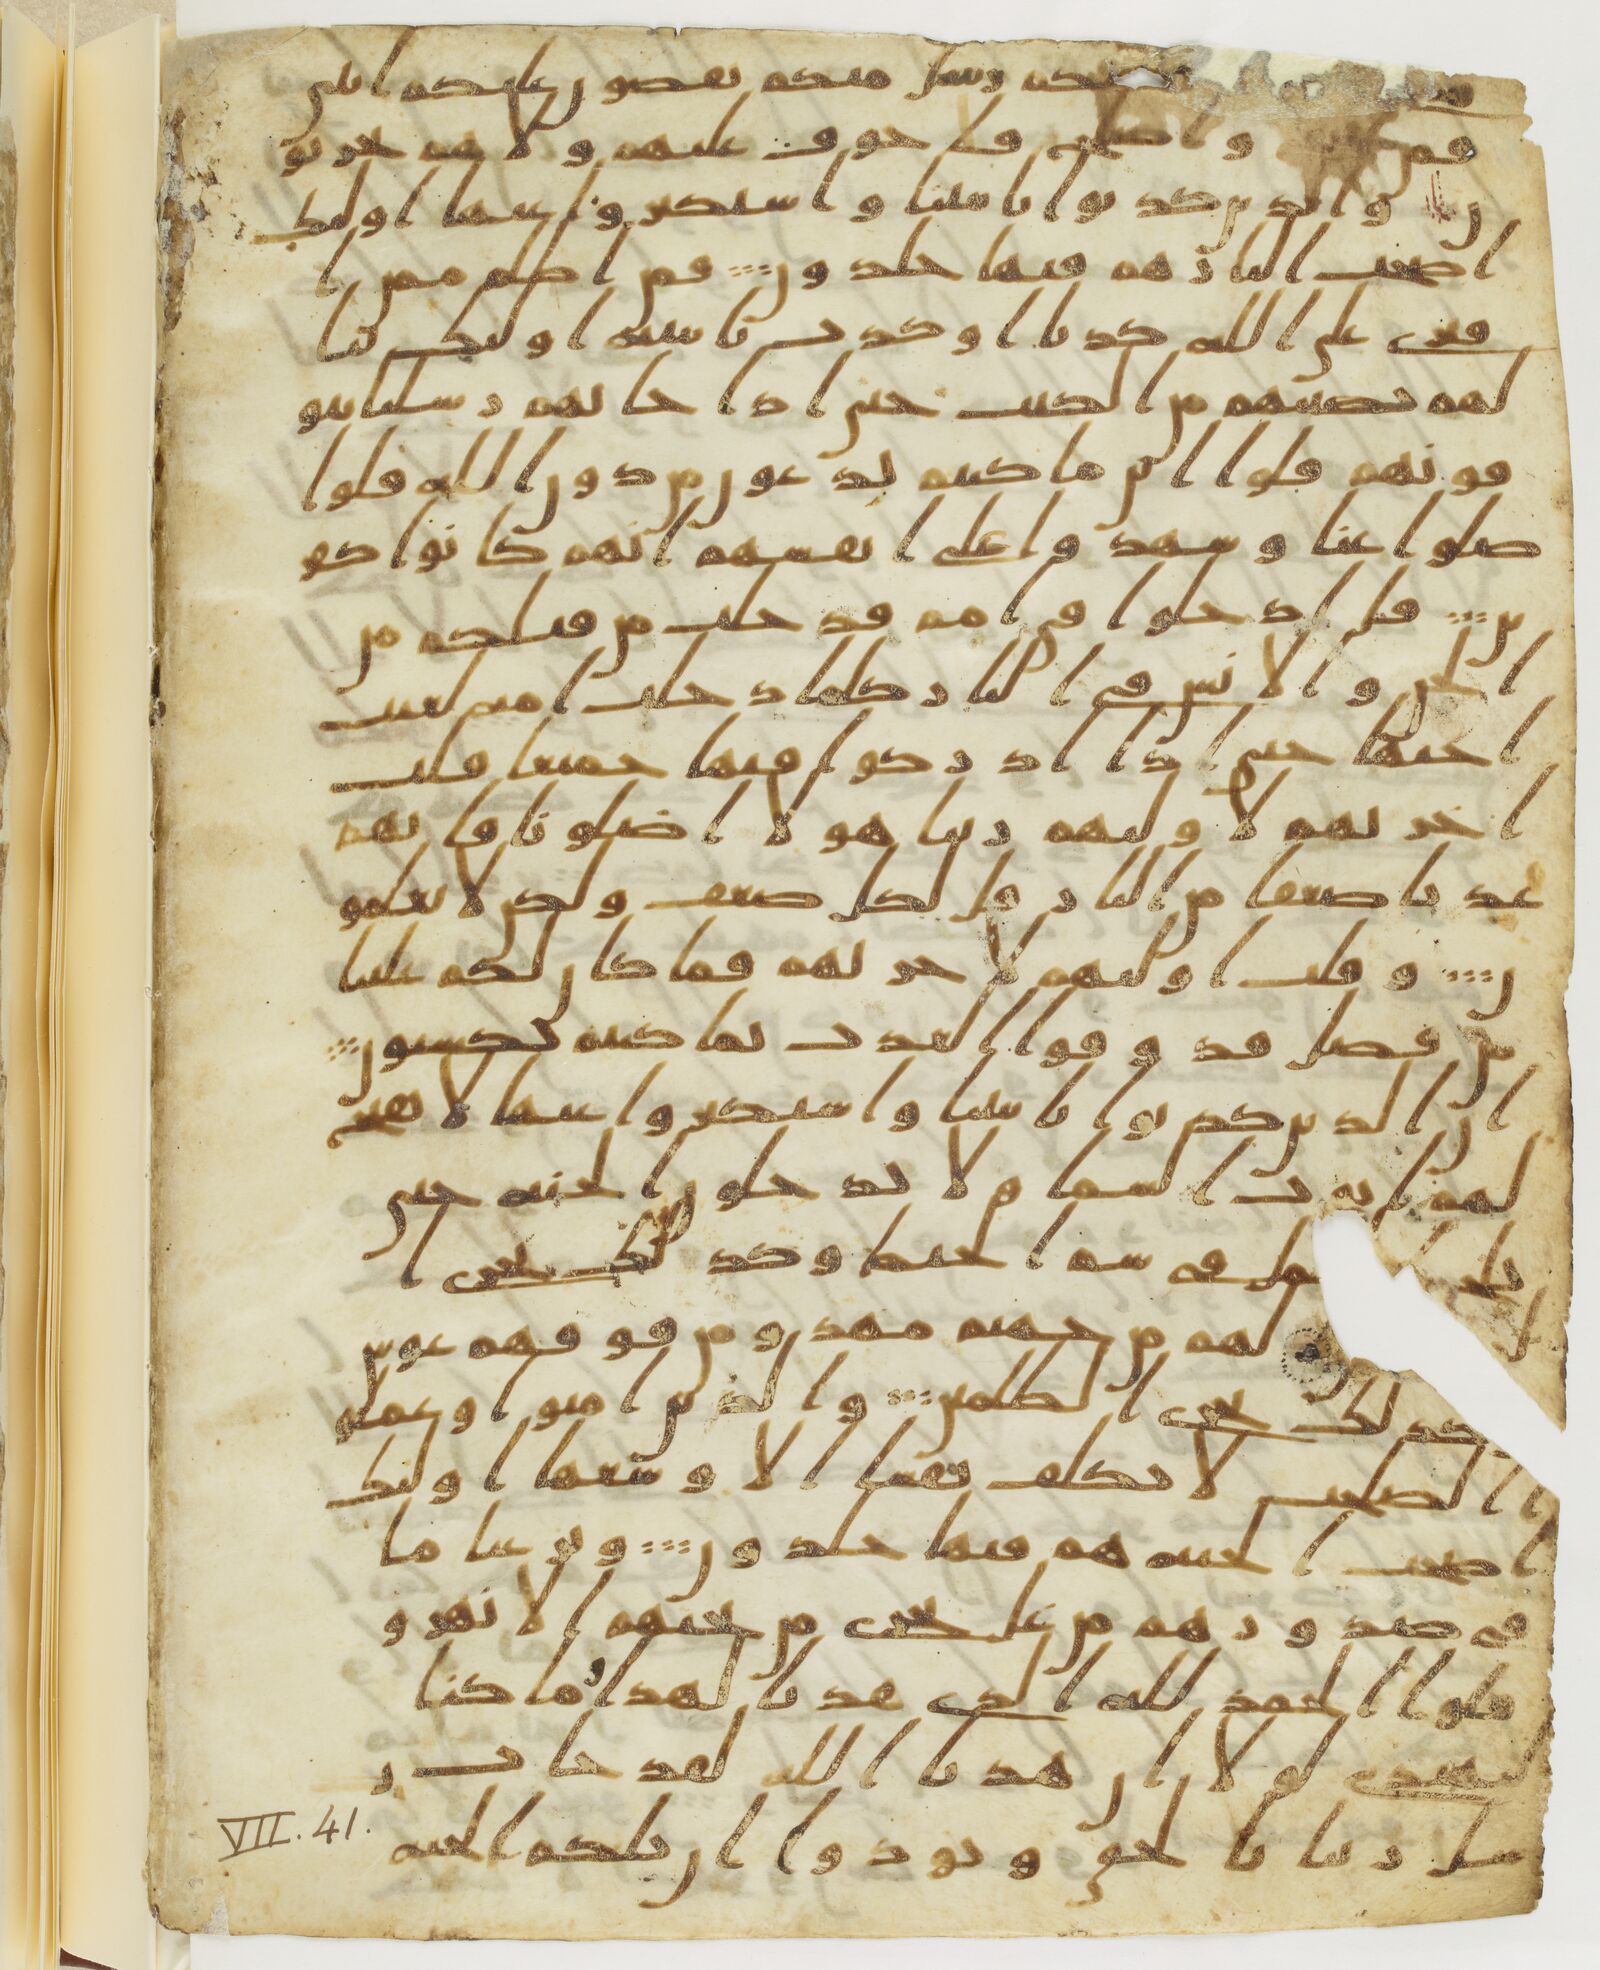 ـكم رسل منكم يقصون عليكم ايتى
فمن واصلح فلا خوف عليهم ولا هم يحزنو
ن والذين كذبوا بايتنا واستكبروا عنها اوليك
اصحب النار هم فيها خلدون ؞ فمن اظلم ممن ا
فترى على الله كذبا او كذب بايته اوليك ينا
لهم نصيبهم من الكتب حتى اذا جاتهم رسلنا يتو
فونهم قلوا اين ما كنتم تدعون من دون الله قلوا
ضلوا عنا وشهدوا على انفسهم انهم كانوا كفر
ين ؞ قل ادخلوا فى امم قد خلت من قبلكم من
الجن والانس فى النار كلما دخلت امه لعنت
اختها حتى اذا اداركوا فيها جميعا قلت
اخرتهم لاوليهم ربنا هولا اضلونا فاتهم
عذبا ضعفا من النار قل لكل ضعف ولكن لا تعلمو
ن ؞ وقلت اوليهم لاخرتهم فما كان لكم علينا
من فضل فذوقوا العذب بما كنتم تكسبون ؞
ان الذين كذبوا بايتنا واستكبروا عنها لا تفتح
لهم ابوب السما ولا يدخلون الجنه حتى
يلج الجمل فى سم الخيط وكذلك نجزى ا
لهم من جهنم مهد ومن فوقهم غوش
وكذلك نجزى الظلمين ؞ والذين امنوا وعملو
ا الصلحت لا نكلف نفسا الا وسعها اوليك
اصحب الجنه هم فيها خلدون ؞ ونزعنا ما
فى صدورهم من غل تجرى من تحتهم الانهر و
قلوا الحمد لله الذى هدينا لهذا وما كنا
لنهتدى لولا ان هدينا الله لقد جات ر
سل ربنا بالحق ونودوا ان تلكم الجنه
VII. 41.